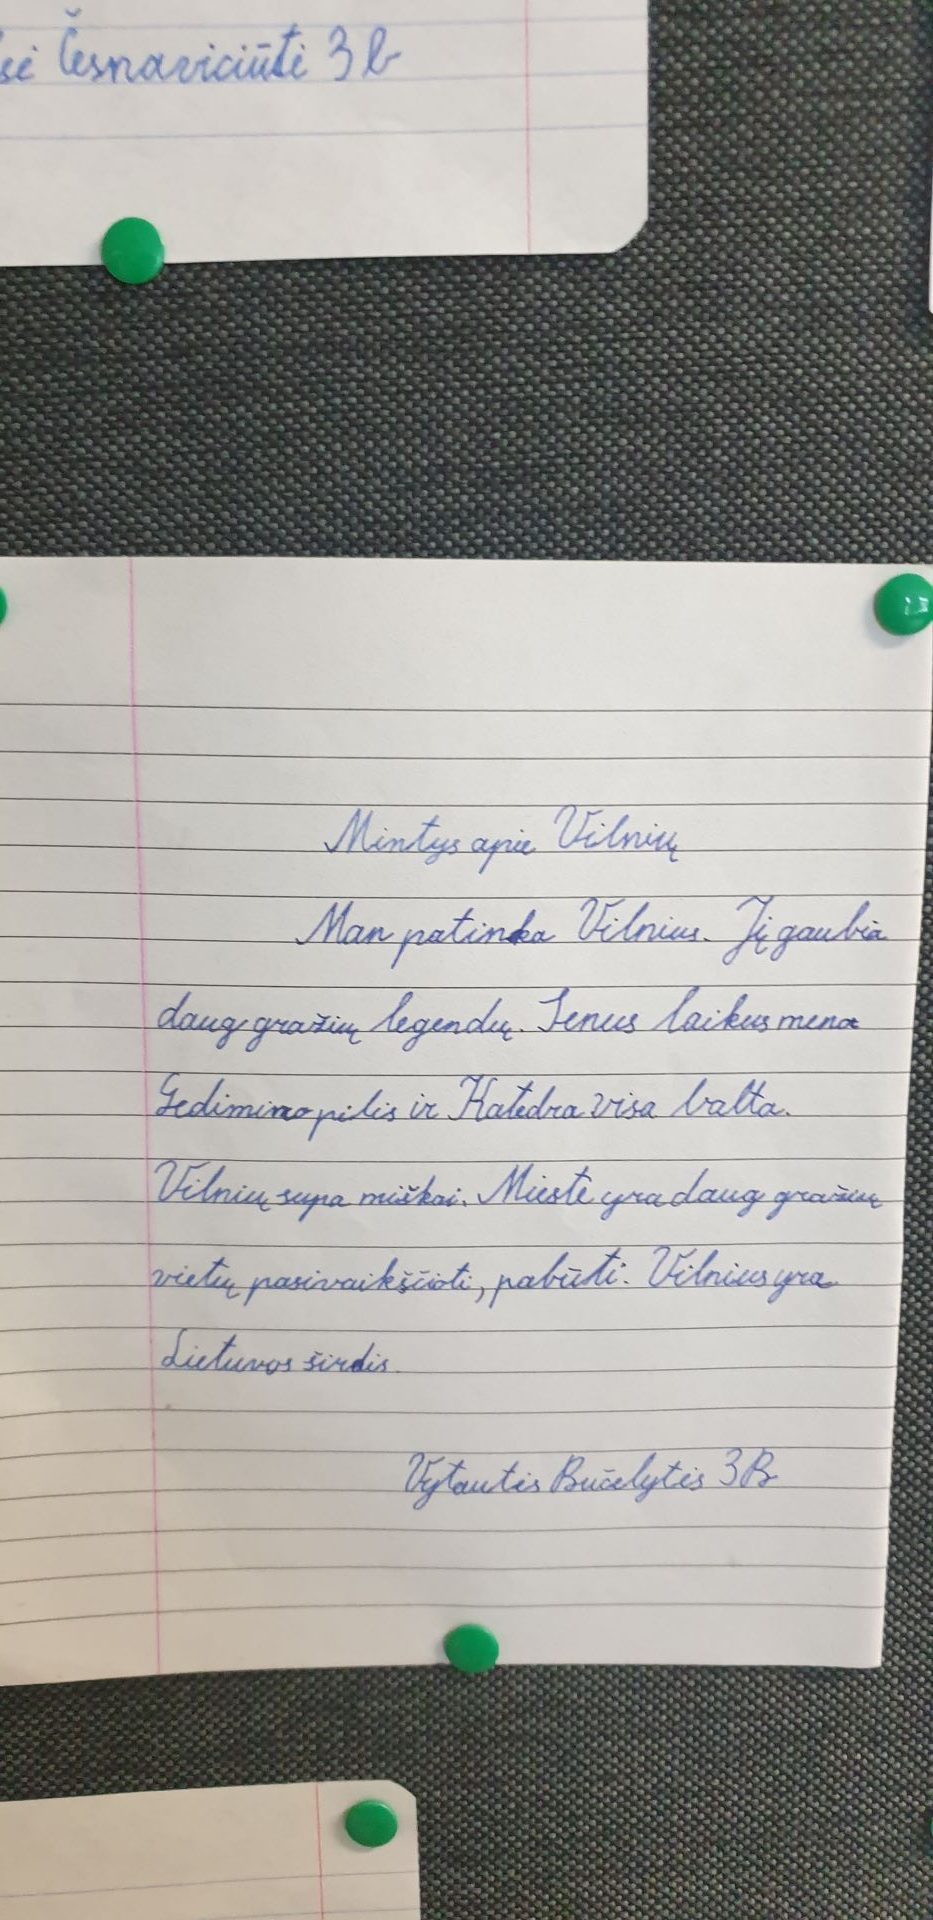 Česnavičiūtė 3 b
Mintys apie Vilnių
Man patinka Vilnius. Jį gaubia
daug gražių legendų. Senus laikus mena
Gedimino pilis ir Katedra visa balta.
Vilnių supa miškai. Mieste yra daug gražių
vietų pasivaikščioti, pabūti. Vilnius yra
Lietuvos širdis.
Vytautis Bučelytis 3B